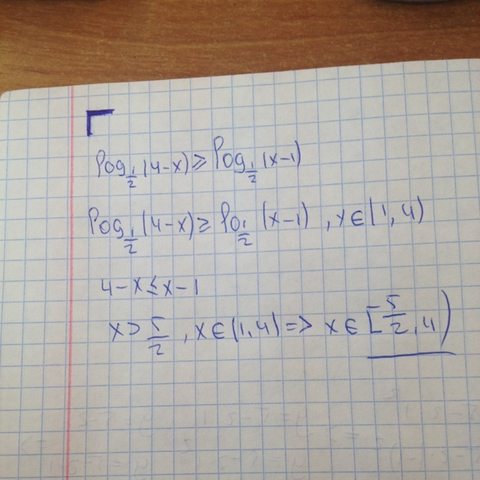 log_{1/2}(4-x) ≥ log_{1/2}(x-1)
log_{1/2}(4-x) ≥ lo_{1/2}(x-1), x∈(1,4)
4-x ≤ x-1
x > 5/2, x∈(1,4) => x∈[5/2, 4)